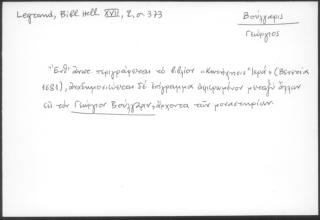 Legrand, Bibl Hell XVII, 2, σ 373
Βούλγαρις
Γεώργιος
Ἐνθ' ὅπου περιγράφεται τὸ βιβλίον «Κατήχησις Ἱερά» (Βενετία
1681), ἀναδημοσιεύεται δὲ ἐπίγραμμα ἀφιερωμένον μεταξὺ ἄλλων
εἰς τὸν Γεώργιον Βούλγαριν, ἄρχοντα τῶν μοναστηρίων.